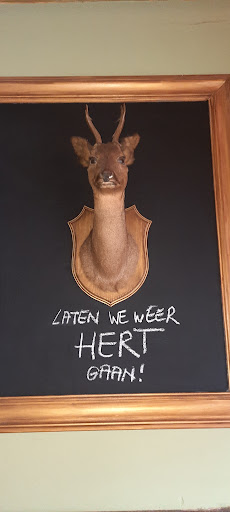 LATEN WE WEER
HERT
GAAN!